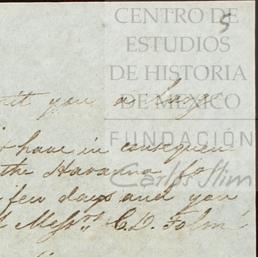 CENTRO DE
ESTUDIOS
DE HISTORIA
DE MÉXICO
FUNDACIÓN
Carlos Slim
5
you a large
have in consequen
the Havanna for
few days and you
Messrs. C.D.